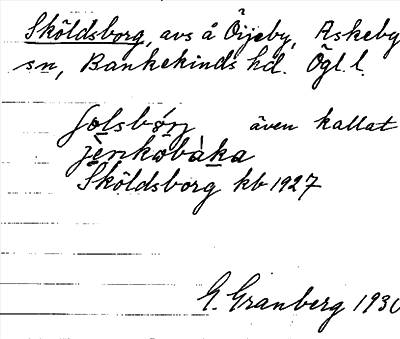 Sköldsborg, avs å Öijeby, Askeby
sn, Bankekinds hd. Ögl. l.
även kallat
Sköldsborg kb 1927
G. Granberg 1930